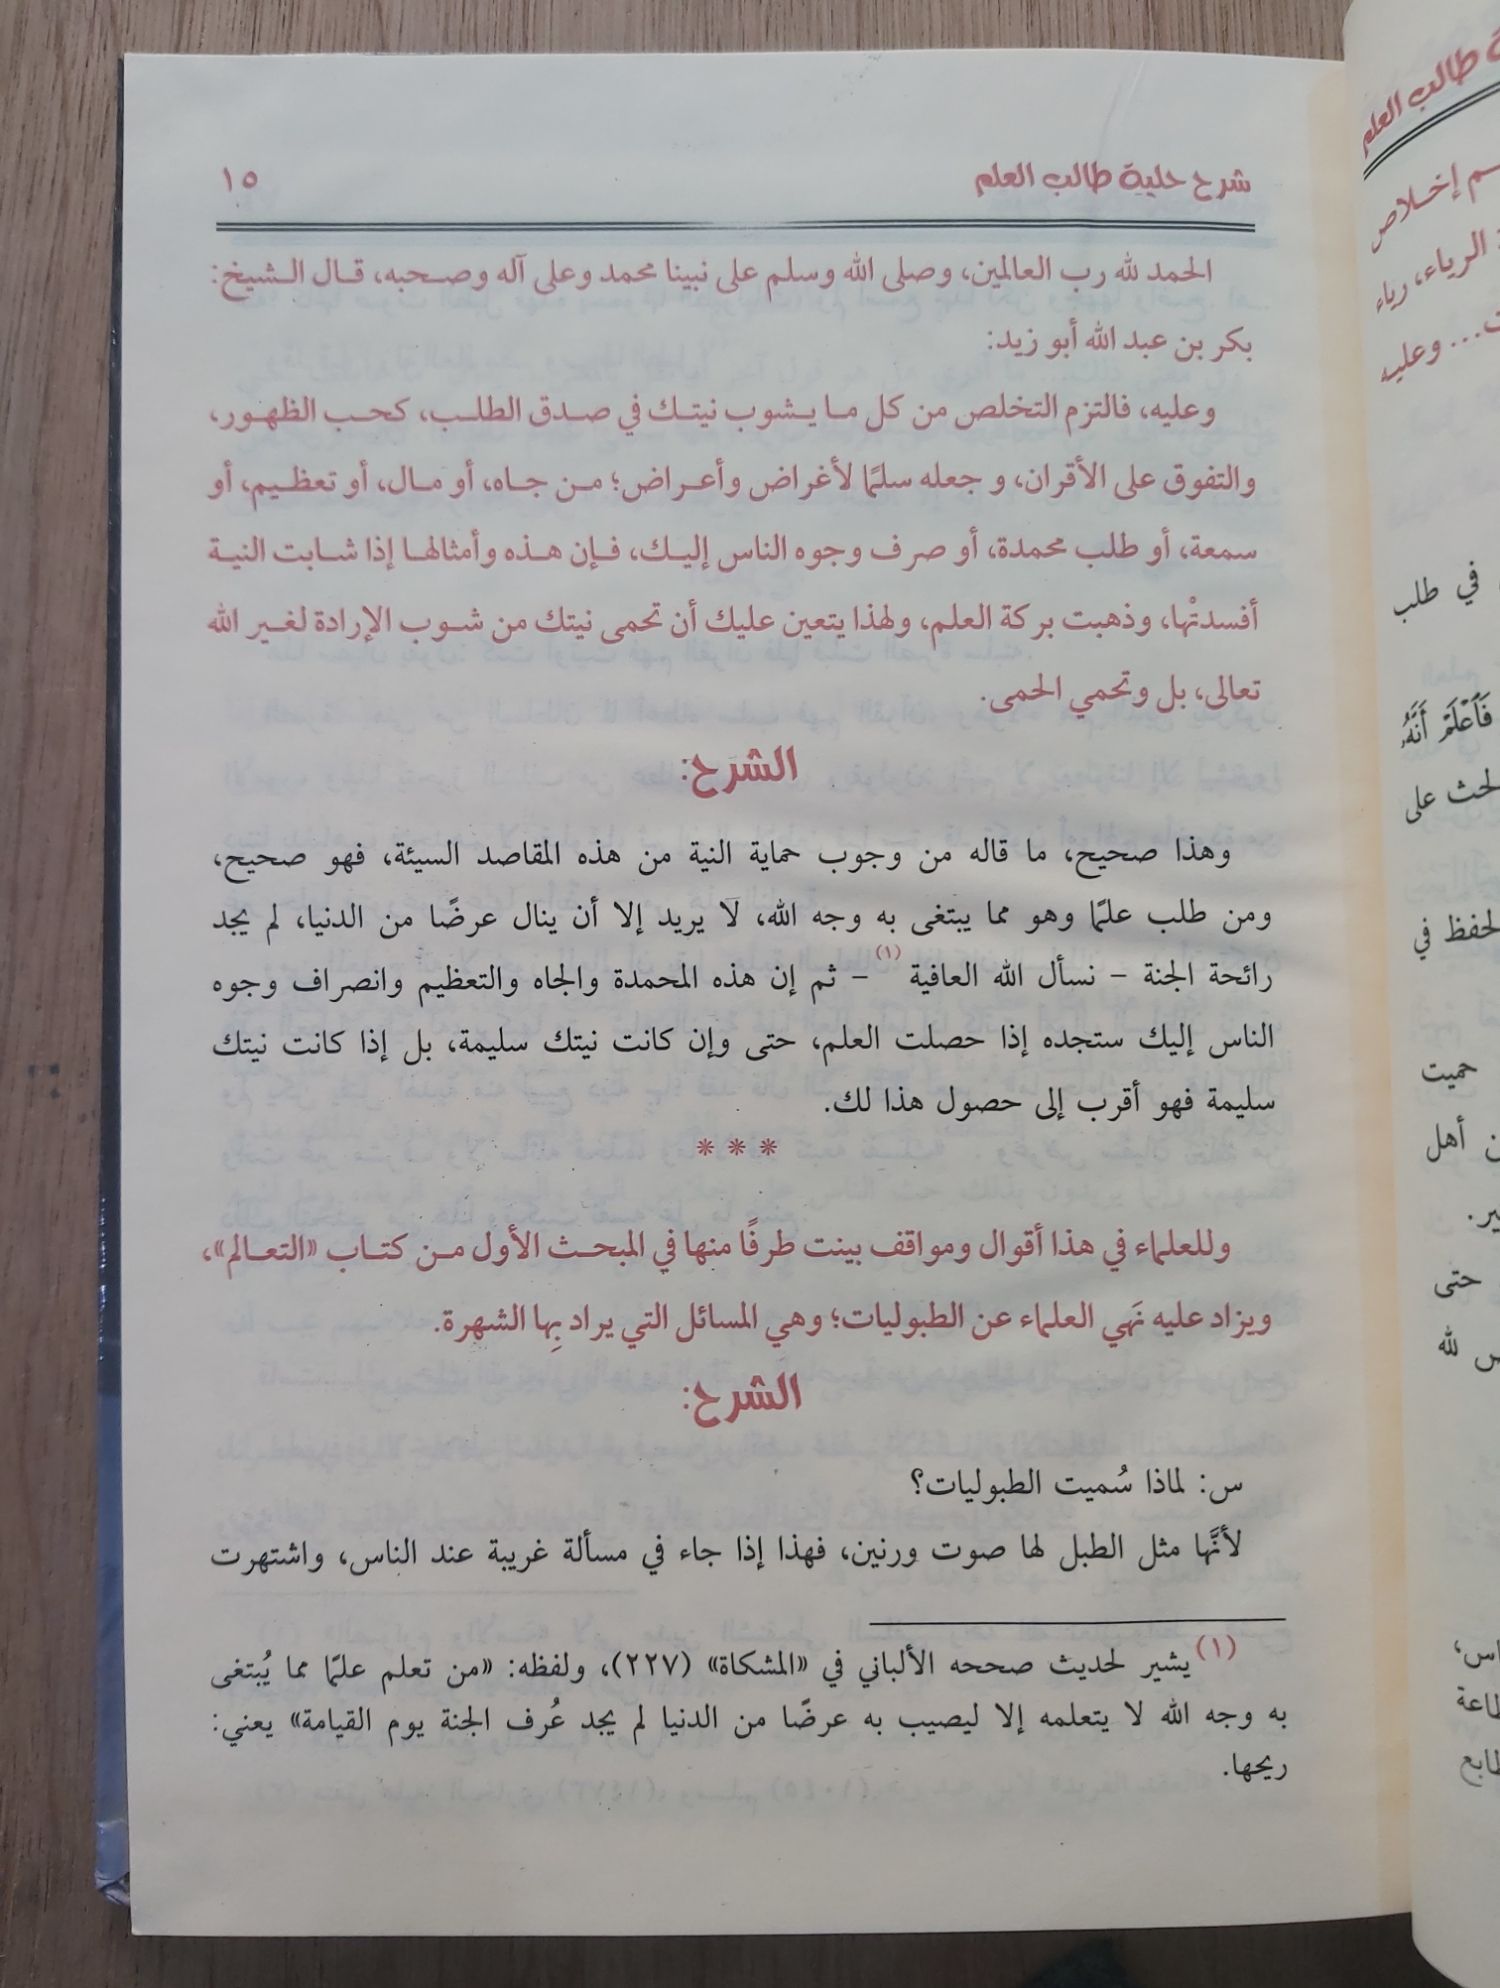 شرح حلية طالب العلم ١٥
الحمد لله رب العالمين، وصلى الله وسلم على نبينا محمد وعلى آله وصحبه، قال الشيخ:
بكر بن عبد الله أبو زيد:
وعليه، فالتزم التخلص من كل ما يشوب نيتك في صدق الطلب، كحب الظهور،
والتفوق على الأقران، و جعله سلمًا لأغراض وأعراض؛ من جاه، أو مال، أو تعظيم، أو
سمعة، أو طلب محمدة، أو صرف وجوه الناس إليك، فإن هذه وأمثالها إذا شابت النية
أفسدتْها، وذهبت بركة العلم، ولهذا يتعين عليك أن تحمى نيتك من شوب الإرادة لغير الله
تعالى، بل وتحمي الحمى.
الشرح:
وهذا صحيح، ما قاله من وجوب حماية النية من هذه المقاصد السيئة، فهو صحيح،
ومن طلب علمًا وهو مما يبتغى به وجه الله، لا يريد إلا أن ينال عرضًا من الدنيا، لم يجد
رائحة الجنة – نسأل الله العافية (١) – ثم إن هذه المحمدة والجاه والتعظيم وانصراف وجوه
الناس إليك ستجده إذا حصلت العلم، حتى وإن كانت نيتك سليمة، بل إذا كانت نيتك
سليمة فهو أقرب إلى حصول هذا لك.
* * *
وللعلماء في هذا أقوال ومواقف بينت طرفًا منها في المبحث الأول من كتاب «التعالم»،
ويزاد عليه نَهي العلماء عن الطبوليات؛ وهي المسائل التي يراد بِها الشهرة.
الشرح:
س: لماذا سُميت الطبوليات؟
لأنَّها مثل الطبل لها صوت ورنين، فهذا إذا جاء في مسألة غريبة عند الناس، واشتهرت
(١) يشير لحديث صححه الألباني في «المشكاة» (٢٢٧)، ولفظه: «من تعلم علمًا مما يُبتغى
به وجه الله لا يتعلمه إلا ليصيب به عرضًا من الدنيا لم يجد عُرف الجنة يوم القيامة» يعني:
ريحها.
طالب العلم
إخلاص
الرياء، رياء
وعليه
في طلب
فَاعْلَمْ أَنَّهُ
لحث على
لحفظ في
حميت
أهل
حتى
لله